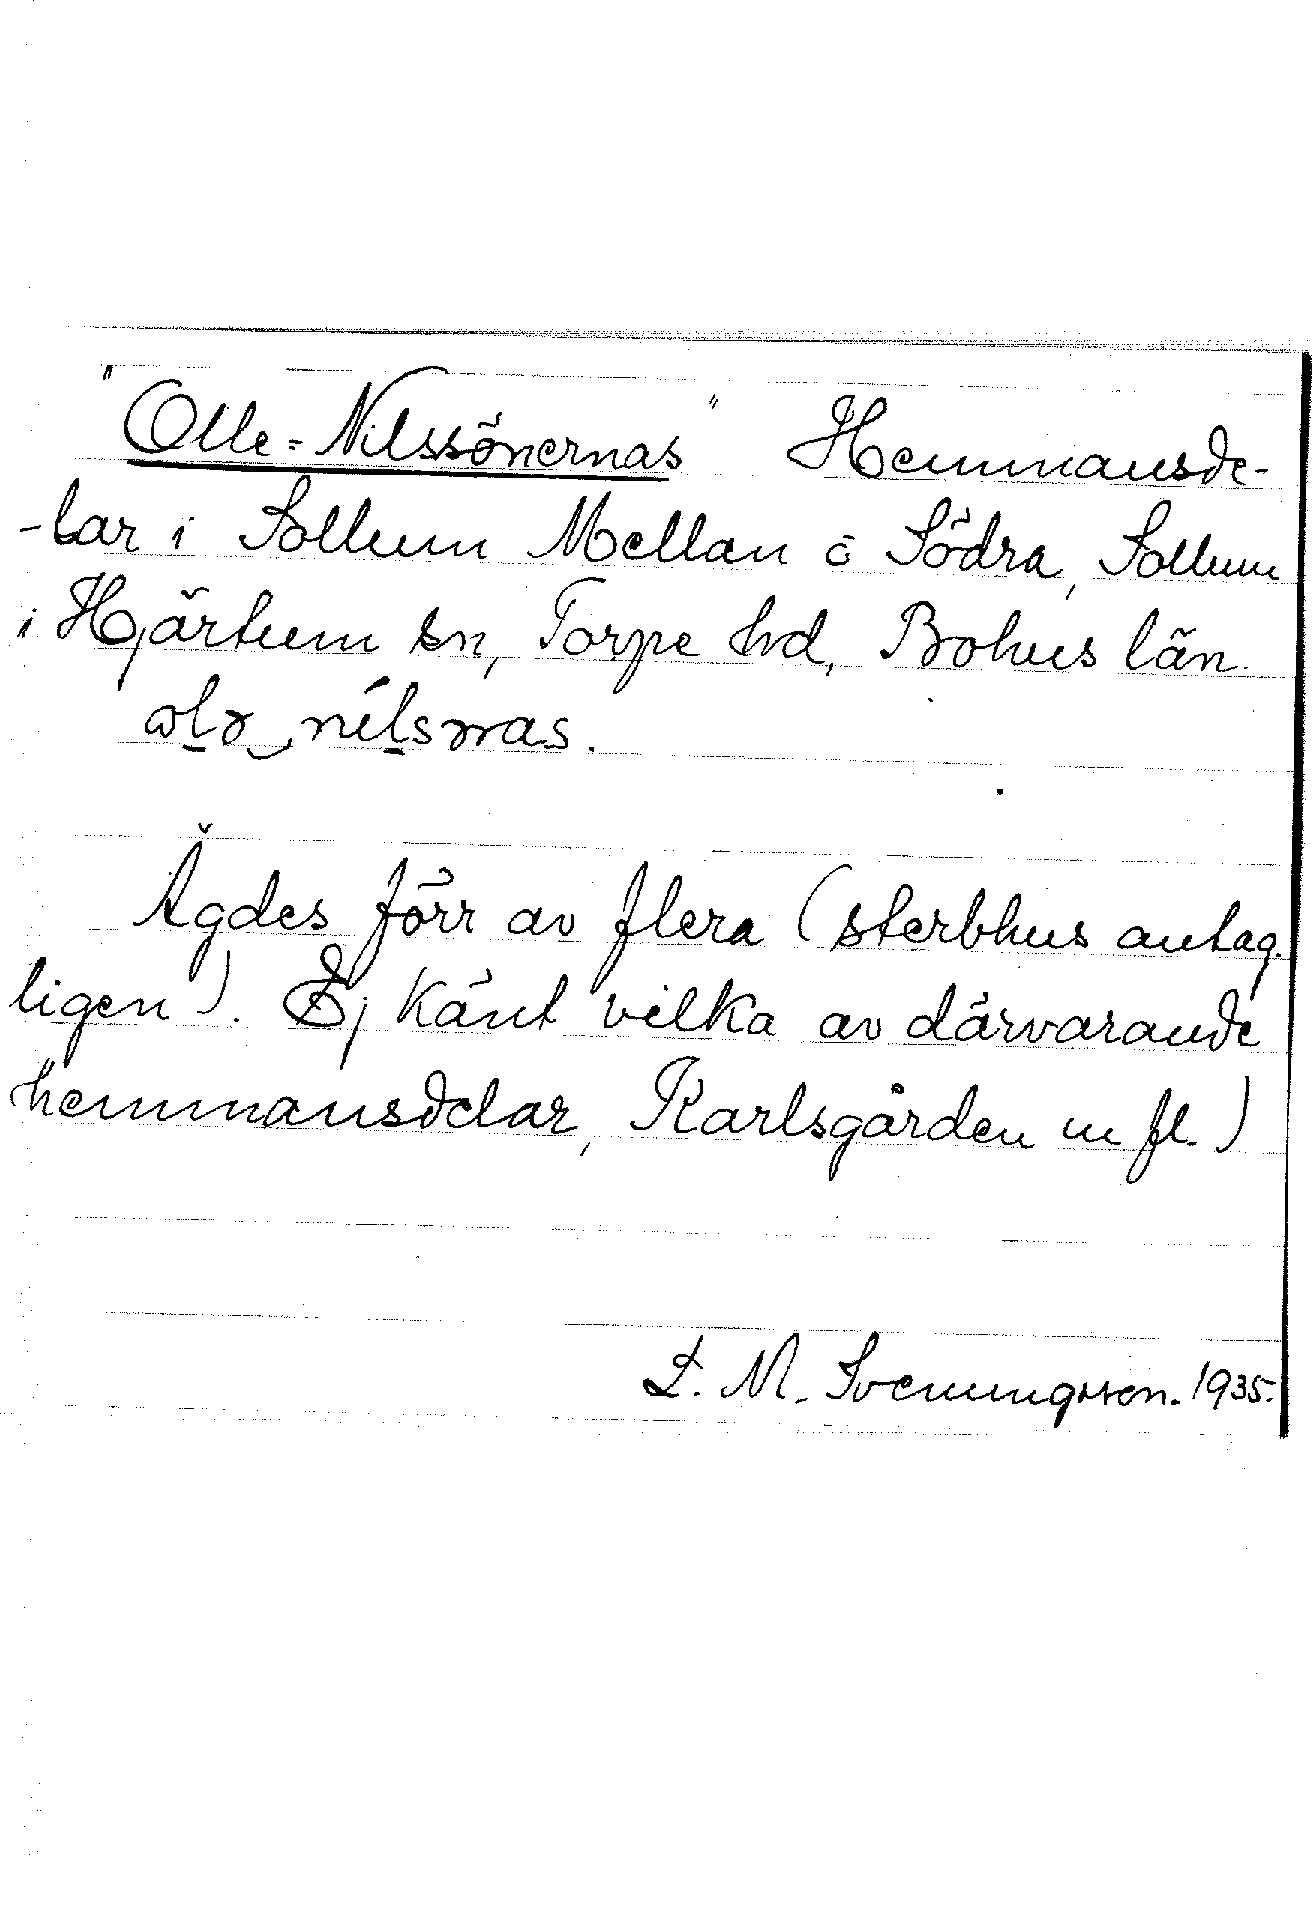 "Olle-Nilssönernas" Hemmansde-
-lar i Sollum Mellan o Södra, Sollum
i Hjärtum sn, Torpe hd, Bohus län.
Ägdes förr av flera (sterbhus antag-
ligen). Ej känt vilka av därvarande
hemmansdelar, Karlsgården m fl.)
L. M. Svenungsson. 1935.